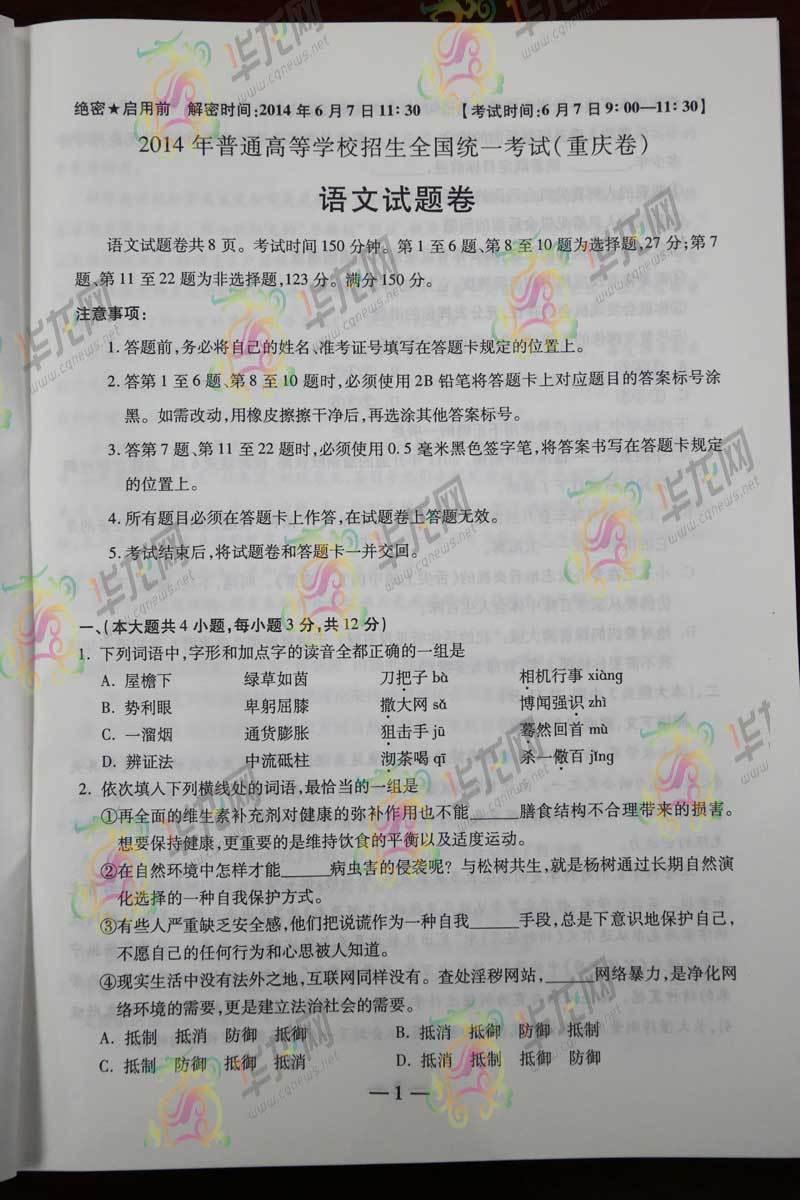 绝密★启用前 解密时间:2014年6月7日11:30 【考试时间:6月7日9:00—11:30】
2014年普通高等学校招生全国统一考试(重庆卷)
语文试题卷
语文试题卷共8页。考试时间150分钟。第1至6题、第8至10题为选择题,27分;第7
题、第11至22题为非选择题,123分。满分150分。
注意事项:
1.答题前,务必将自己的姓名、准考证号填写在答题卡规定的位置上。
2.答第1至6题、第8至10题时,必须使用2B铅笔将答题卡上对应题目的答案标号涂
黑。如需改动,用橡皮擦擦干净后,再选涂其他答案标号。
3.答第7题、第11至22题时,必须使用0.5毫米黑色签字笔,将答案书写在答题卡规定
的位置上。
4.所有题目必须在答题卡上作答,在试题卷上答题无效。
5.考试结束后,将试题卷和答题卡一并交回。
一、(本大题共4小题,每小题3分,共12分)
1. 下列词语中,字形和加点字的读音全都正确的一组是
A. 屋檐下 绿草如茵 刀把子bà 相机行事xiàng
B. 势利眼 卑躬屈膝 撒大网sǎ 博闻强识zhì
C. 一溜烟 通货膨胀 狙击手jū 蓦然回首mù
D. 辨证法 中流砥柱 沏茶喝qī 杀一儆百jǐng
2. 依次填入下列横线处的词语,最恰当的一组是
①再全面的维生素补充剂对健康的弥补作用也不能______膳食结构不合理带来的损害。
想要保持健康,更重要的是维持饮食的平衡以及适度运动。
②在自然环境中怎样才能______病虫害的侵袭呢?与松树共生,就是杨树通过长期自然演
化选择的一种自我保护方式。
③有些人严重缺乏安全感,他们把说谎作为一种自我______手段,总是下意识地保护自己,
不愿自己的任何行为和心思被人知道。
④现实生活中没有法外之地,互联网同样没有。查处淫秽网站,______网络暴力,是净化网
络环境的需要,更是建立法治社会的需要。
A. 抵制 抵消 防御 抵御 B. 抵消 抵御 防御 抵制
C. 抵制 防御 抵御 抵消 D. 抵消 抵制 抵御 防御
— 1 —
华龙网
www.cqnews.net